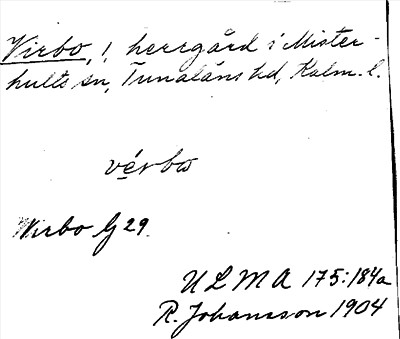 Virbo, 1, herrgård i Mister-
hults sn, Tunaläns hd, Kalm. l.
vérbω
Wirbo G 29.
ULMA 175:184a
R. Johansson 1904